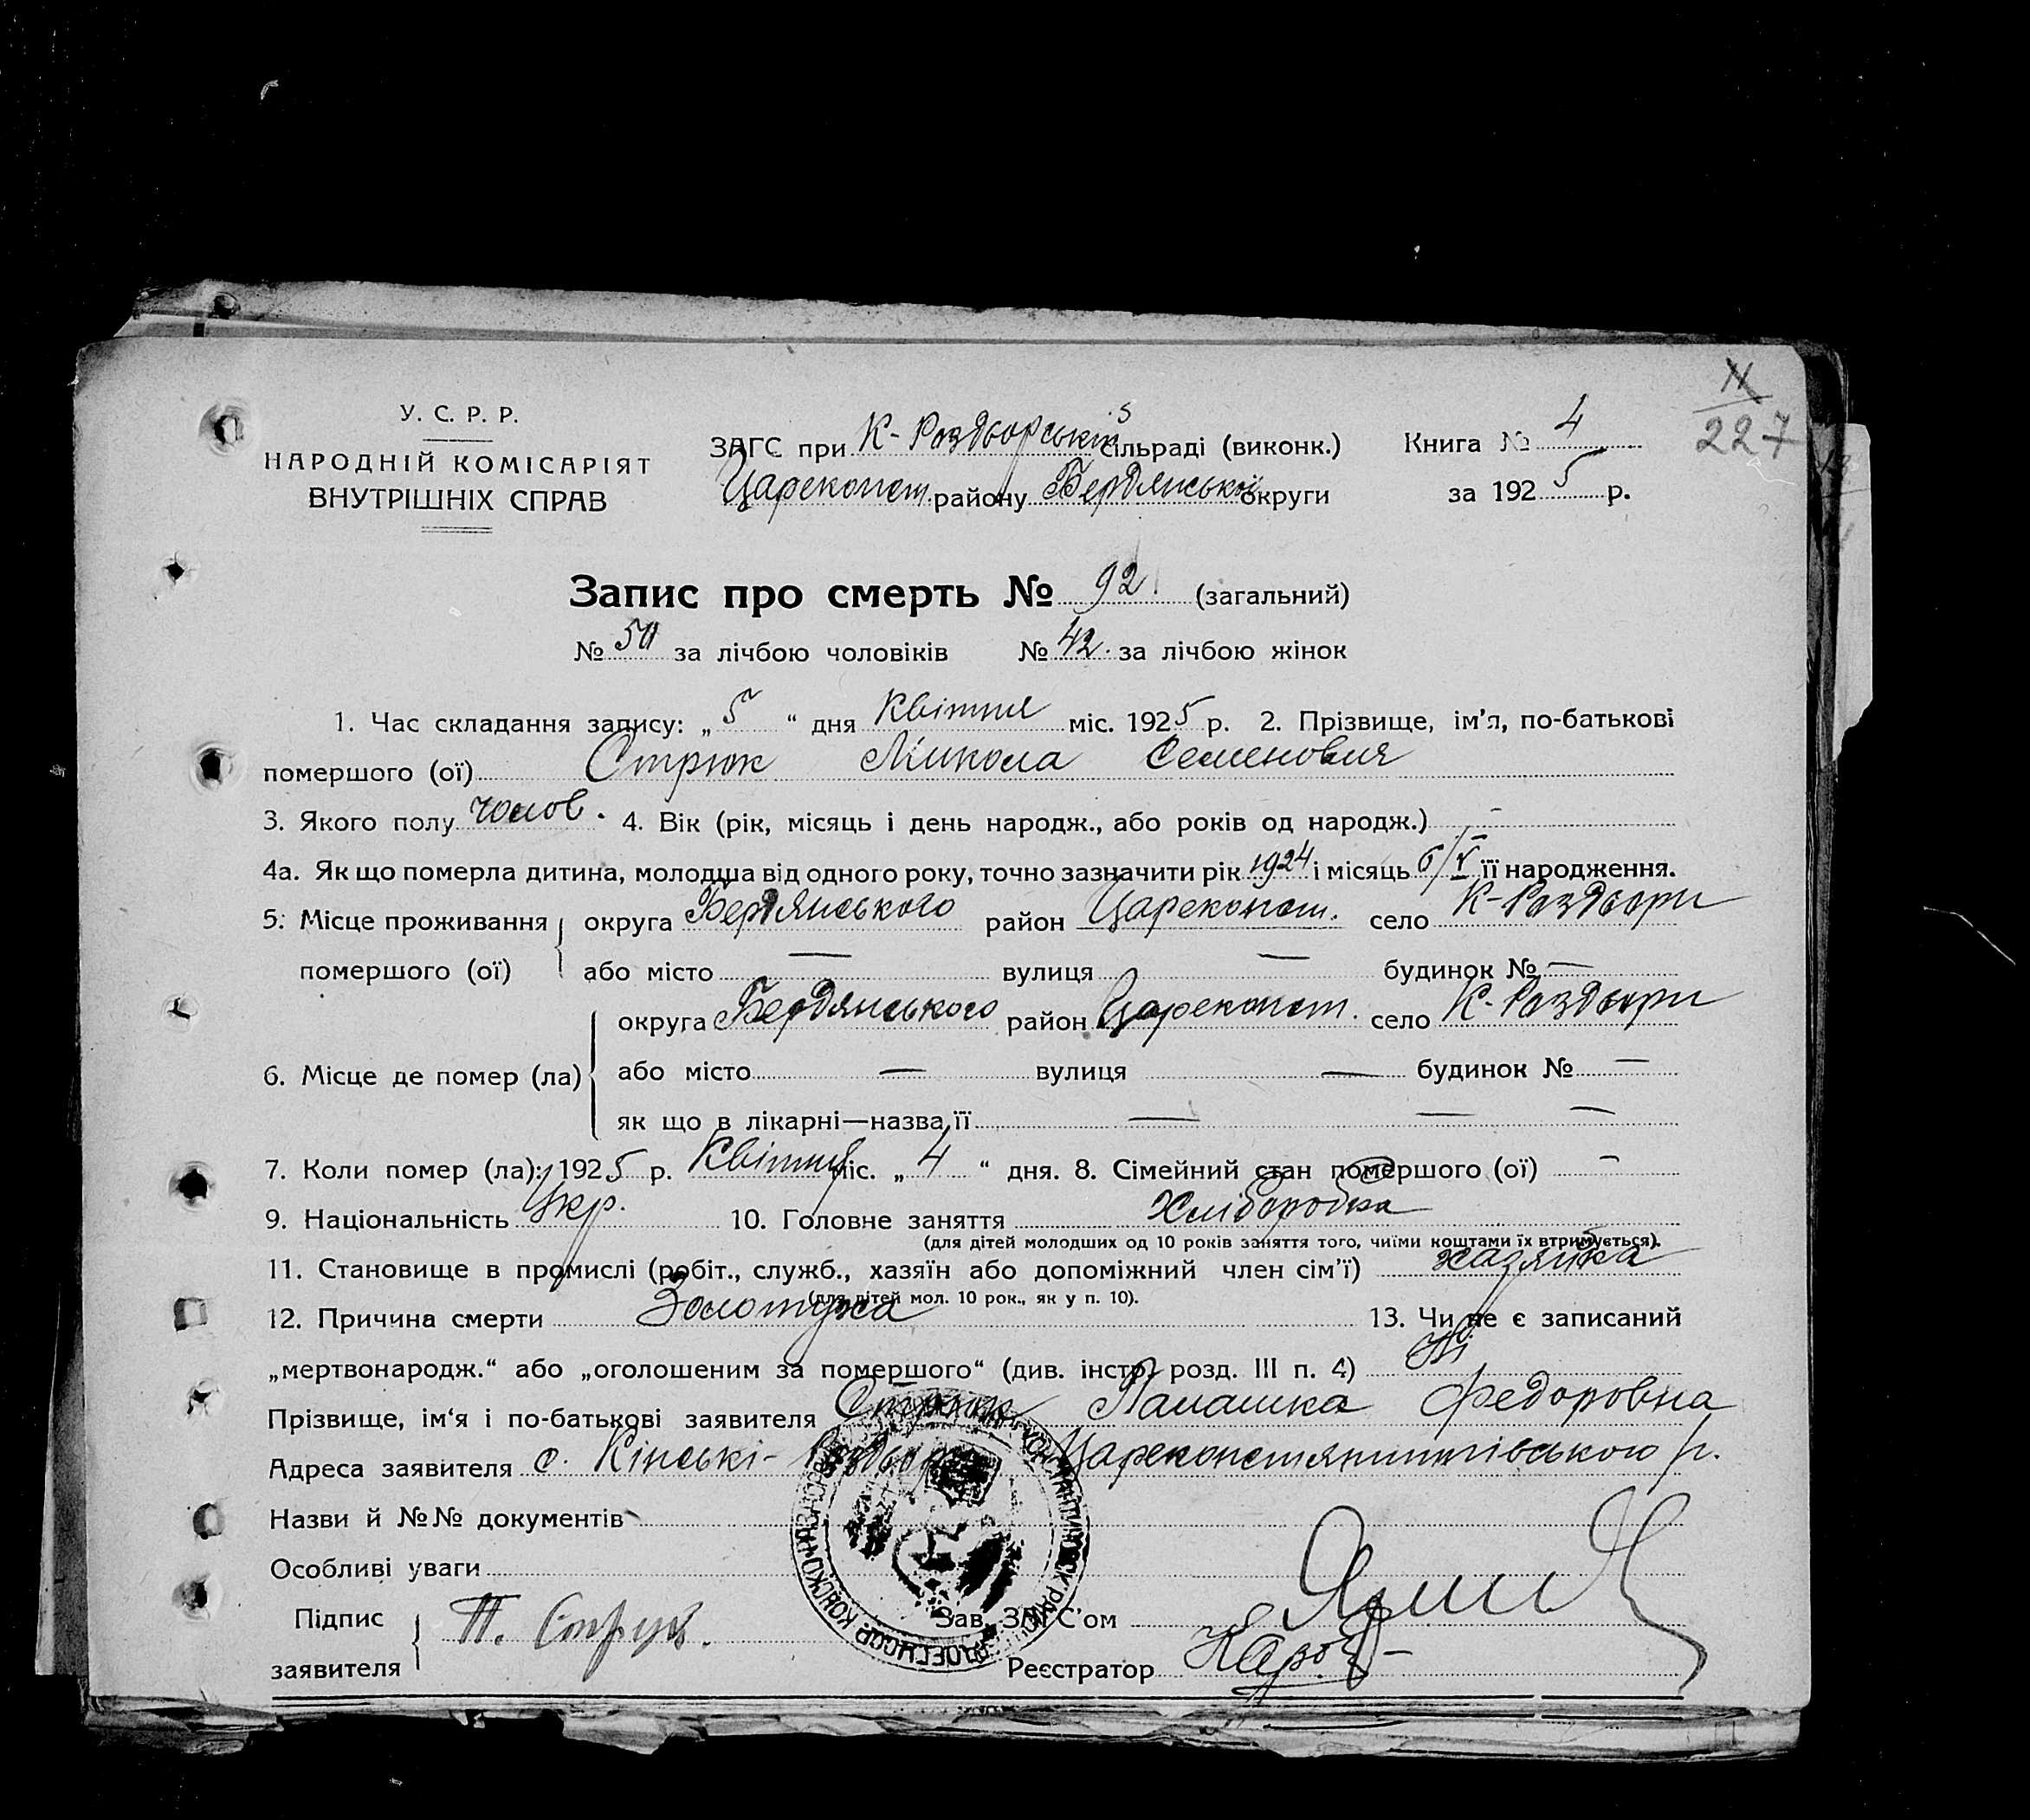 У. С. Р. Р.
НАРОДНІЙ КОМІСАРІЯТ
ВНУТРІШНІХ СПРАВ
ЗАГС при К-Роздорськім сільраді (виконк.)
Царекопст. району Бердянської округи
Книга № 4
за 1925 р.
11
227
Запис про смерть № 92 (загальний)
№ 50 за лічбою чоловіків № 42. за лічбою жінок
1. Час складання запису: „5“ дня Квітня міс. 1925 р. 2. Прізвище, ім'я, по-батькові
помершого (ої) Стрюк Микола Семеновия
3. Якого полу чолов. 4. Вік (рік, місяць і день народж., або років од народж.) -
4а. Як що померла дитина, молодша від одного року, точно зазначити рік 1924 і місяць 6/V її народження.
5. Місце проживання округа Бердянського район Цареконст. село К-Роздори
помершого (ої) або місто — вулиця — будинок № —
округа Бердянського район Цареконст. село К-Роздори
6. Місце де помер (ла) або місто — вулиця — будинок № —
як що в лікарні—назва її — — —
7. Коли помер (ла): 1925 р. Квітня міс. „4“ дня. 8. Сімейний стан помершого (ої) -
9. Національність Укр. 10. Головне заняття Хліборобка
(для дітей молодших од 10 років заняття того, чиїми коштами їх втримується).
11. Становище в промислі (робіт., служб., хазяїн або допоміжний член сім'ї) хазяйка
(для дітей мол. 10 рок., як у п. 10).
12. Причина смерти Золотуха 13. Чи не є записаний
„мертвонародж.“ або „оголошеним за помершого“ (див. інстр. розд. III п. 4) Ні
Прізвище, ім'я і по-батькові заявителя Стрюк Палашка Федоровна
Адреса заявителя с. Кінські-Роздори Цареконстянтинівського р.
Назви й №№ документів
Особливі уваги
Підпис заявителя П. Стрюк.
Зав. ЗАГС'ом
Реєстратор